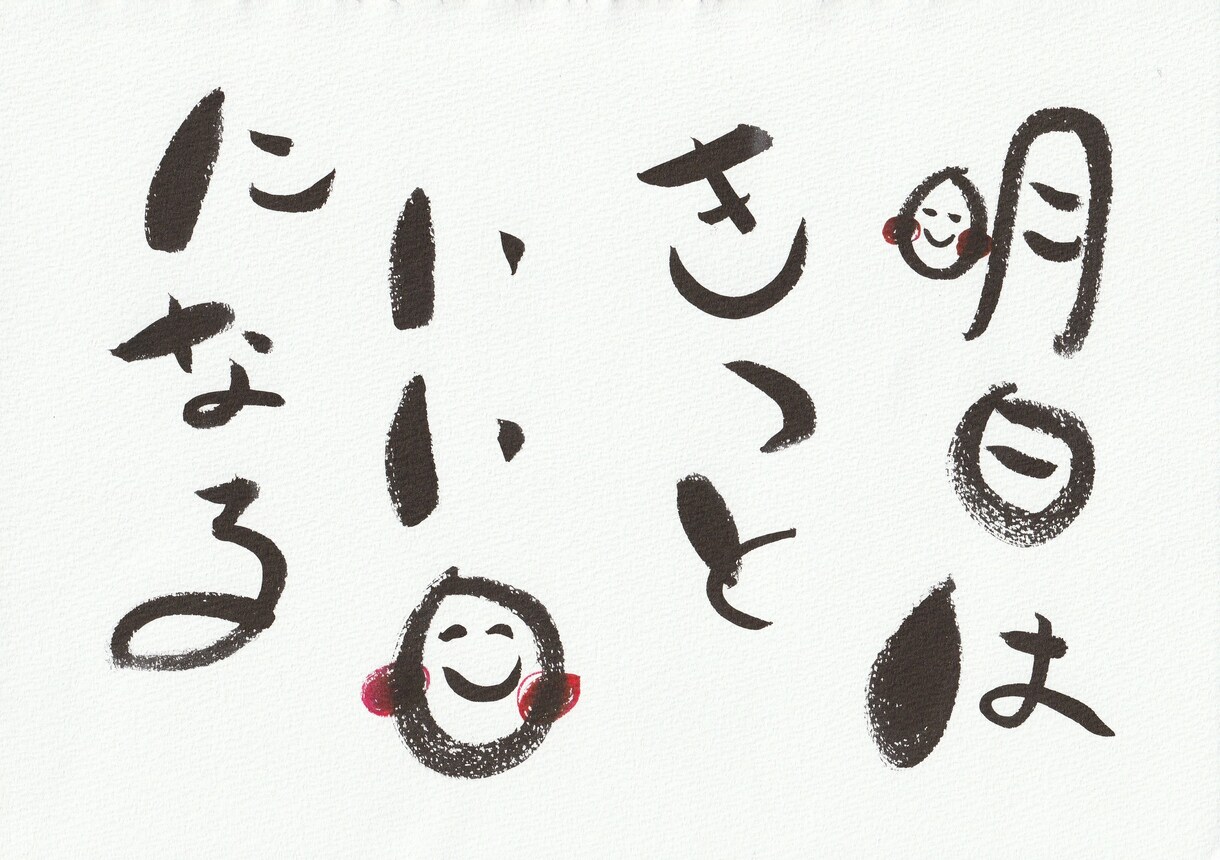 明日は
きっと
いい日
になる